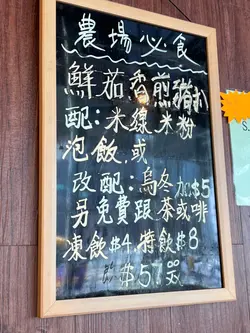 農場必食
鮮茄香煎豬扒
配:米線米粉
泡飯,或
改配:烏冬加$5
另免費跟茶或啡
凍飲$4特飲$8
$57.00